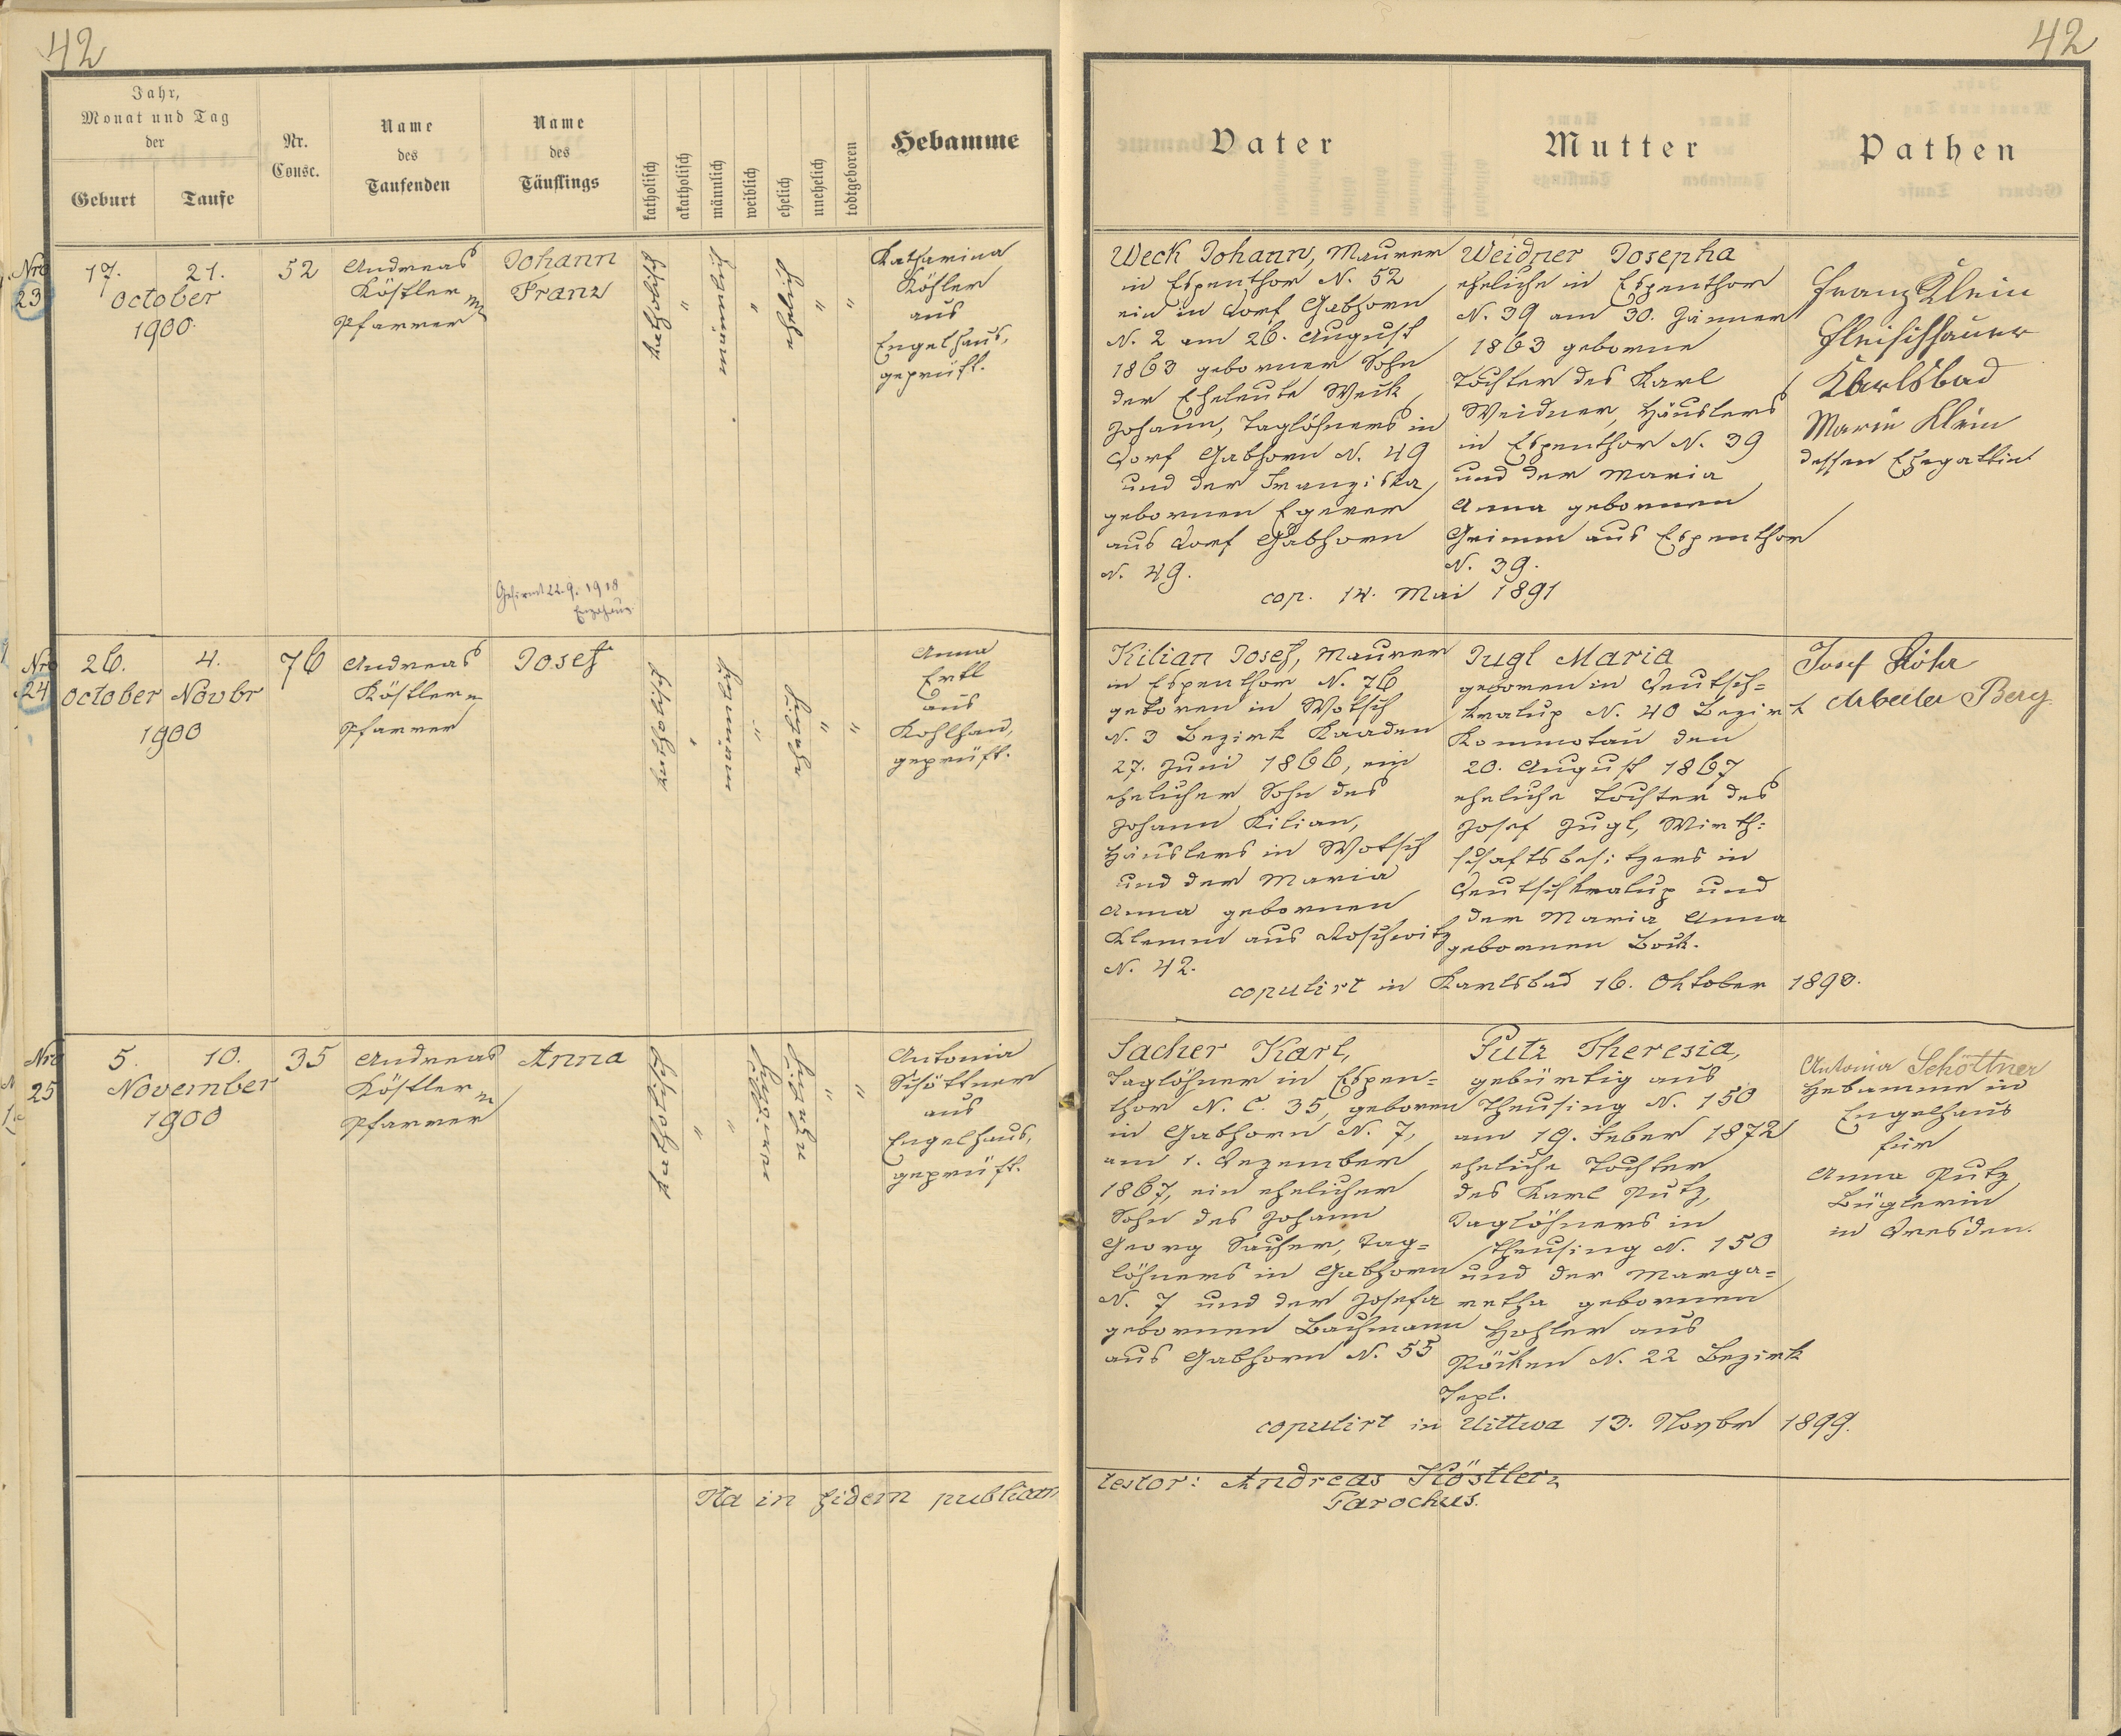 42
Jahr,
Monat und Tag
der
Geburt
Taufe
Nr.
Consc.
Name
des
Taufenden
Name
des
Täuflings
katholisch
akatholisch
männlich
weiblich
ehelich
unehelich
todtgeboren
Hebamme
Nro
23
17. 21.
October
1900.
52
Andreas
Köstler
Pfarrer
Johann
Franz
Gefirmt 22.9. 1918
katholisch
"
männlich
"
ehelich
"
"
Katharina
Köhler
aus
Engelhaus,
geprüft.
Nro
24
26. 4.
October Novbr
1900
76
Andreas
Köstler
Pfarrer
Josef
katholisch
"
männlich
"
eheliche
"
"
Anna
Ertl
aus
Kohlhau,
geprüft.
Nro
25
5. 10.
November
1900
35
Andreas
Köstler
Pfarrer
Anna
katholisch
"
"
ehelich
"
"
Antonia
Schöttner
aus
Engelhaus,
geprüft.
Ita in fidem publicam
42
Vater
Mutter
Pathen
Weck Johann, Maurer
in Espenthor N. 52
ein in Dorf Gabhorn
N. 2 am 26. August
1863 geborner Sohn
der Eheleute Weck
Johann, Taglöhners in
Dorf Gabhorn N. 49
und der Franziska
gebornen Egerer
aus Dorf Gabhorn
N. 49.
Weidner Josepha
eheliche in Espenthor
N. 39 am 30. Jänner
1863 geborne
Tochter des Karl
Weidner, Häuslers
in Espenthor N. 39
und der Maria
Anna gebornen
Grimm aus Espenthor
N. 39.
cop. 14. Mai 1891
Franz Klein
Fleischhauer
Karlsbad
Marie Klein
dessen Ehegattin
Kilian Josef, Maurer
in Espenthor N. 76
geboren in Wotsch
N. 3 Bezirk Kaaden
27. Juni 1866, ein
ehelicher Sohn des
Johann Kilian,
Häuslers in Wotsch
und der Maria
Anna gebornen
Klemm aus Roschwitz
N. 42.
Jugl Maria
geboren in Deutsch=
kralup N. 40 Bezirk
Kommotau den
20. August 1867
eheliche Tochter des
Josef Jugl, Wirth=
schaftsbesitzers in
Deutschkralup und
der Maria Anna
gebornen Bock.
copulirt in Karlsbad 16. Oktober 1890.
Josef Röhr
Arbeiter Berg
Sacher Karl,
Taglöhner in Espen=
thor N. C. 35, geboren
in Gabhorn N. 7,
am 1. Dezember
1867, ein ehelicher
Sohn des Johann
Georg Sacher, Tag=
löhners in Gabhorn
N. 7 und der Josefa
gebornen Bachmann
aus Gabhorn N. 55
Putz Theresia,
gebürtig aus
Theusing N. 150
am 19. Feber 1872
eheliche Tochter
des Karl Putz,
Taglöhners in
Theusing N. 150
und der Marga=
retha gebornen
Hohler aus
Pöcken N. 22 Bezirk
Tepl.
copulirt in Uittwa 13. Novbr 1899.
Antonia Schöttner
Hebamme in
Engelhaus
für
Anna Putz
Büglerin
in Dresden.
testor: Andreas Köstler
Parochus.